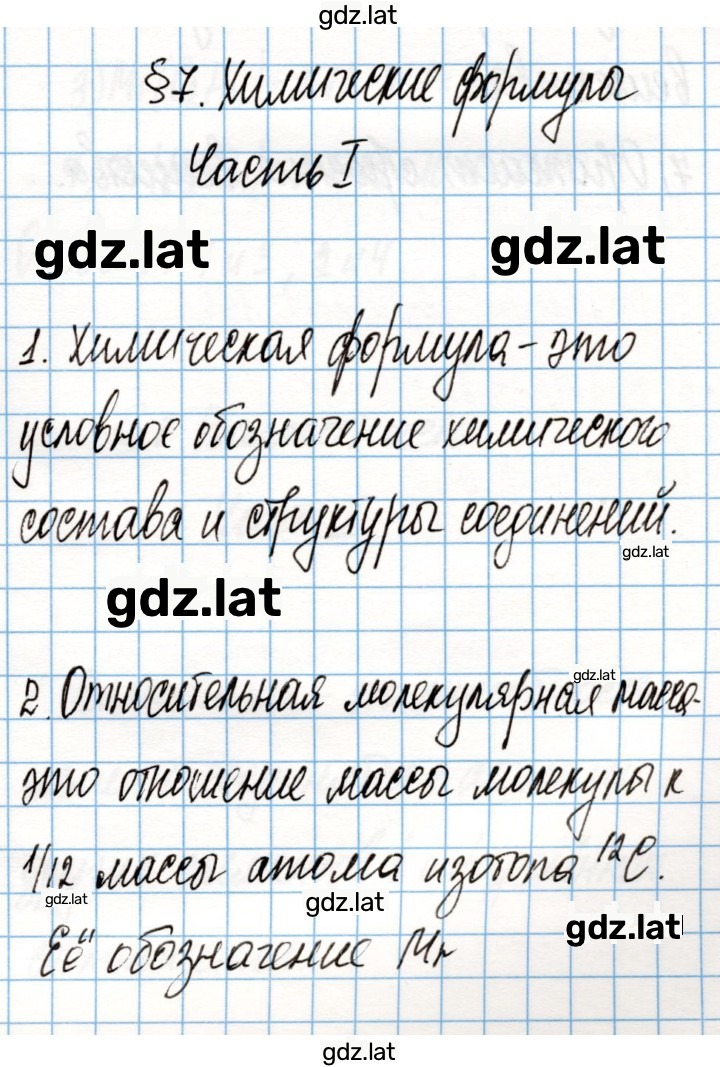 gdz.lat
§7. Химические формулы
Часть I
gdz.lat
gdz.lat
1. Химическая формула - это
условное обозначение химического
состава и структуры соединений.
gdz.lat
gdz.lat
gdz.lat
2. Относительная молекулярная масса-
это отношение массы молекулы к
1/12 массы атома изотопа ¹²C.
gdz.lat
gdz.lat
gdz.lat
Её обозначение Mr
gdz.lat